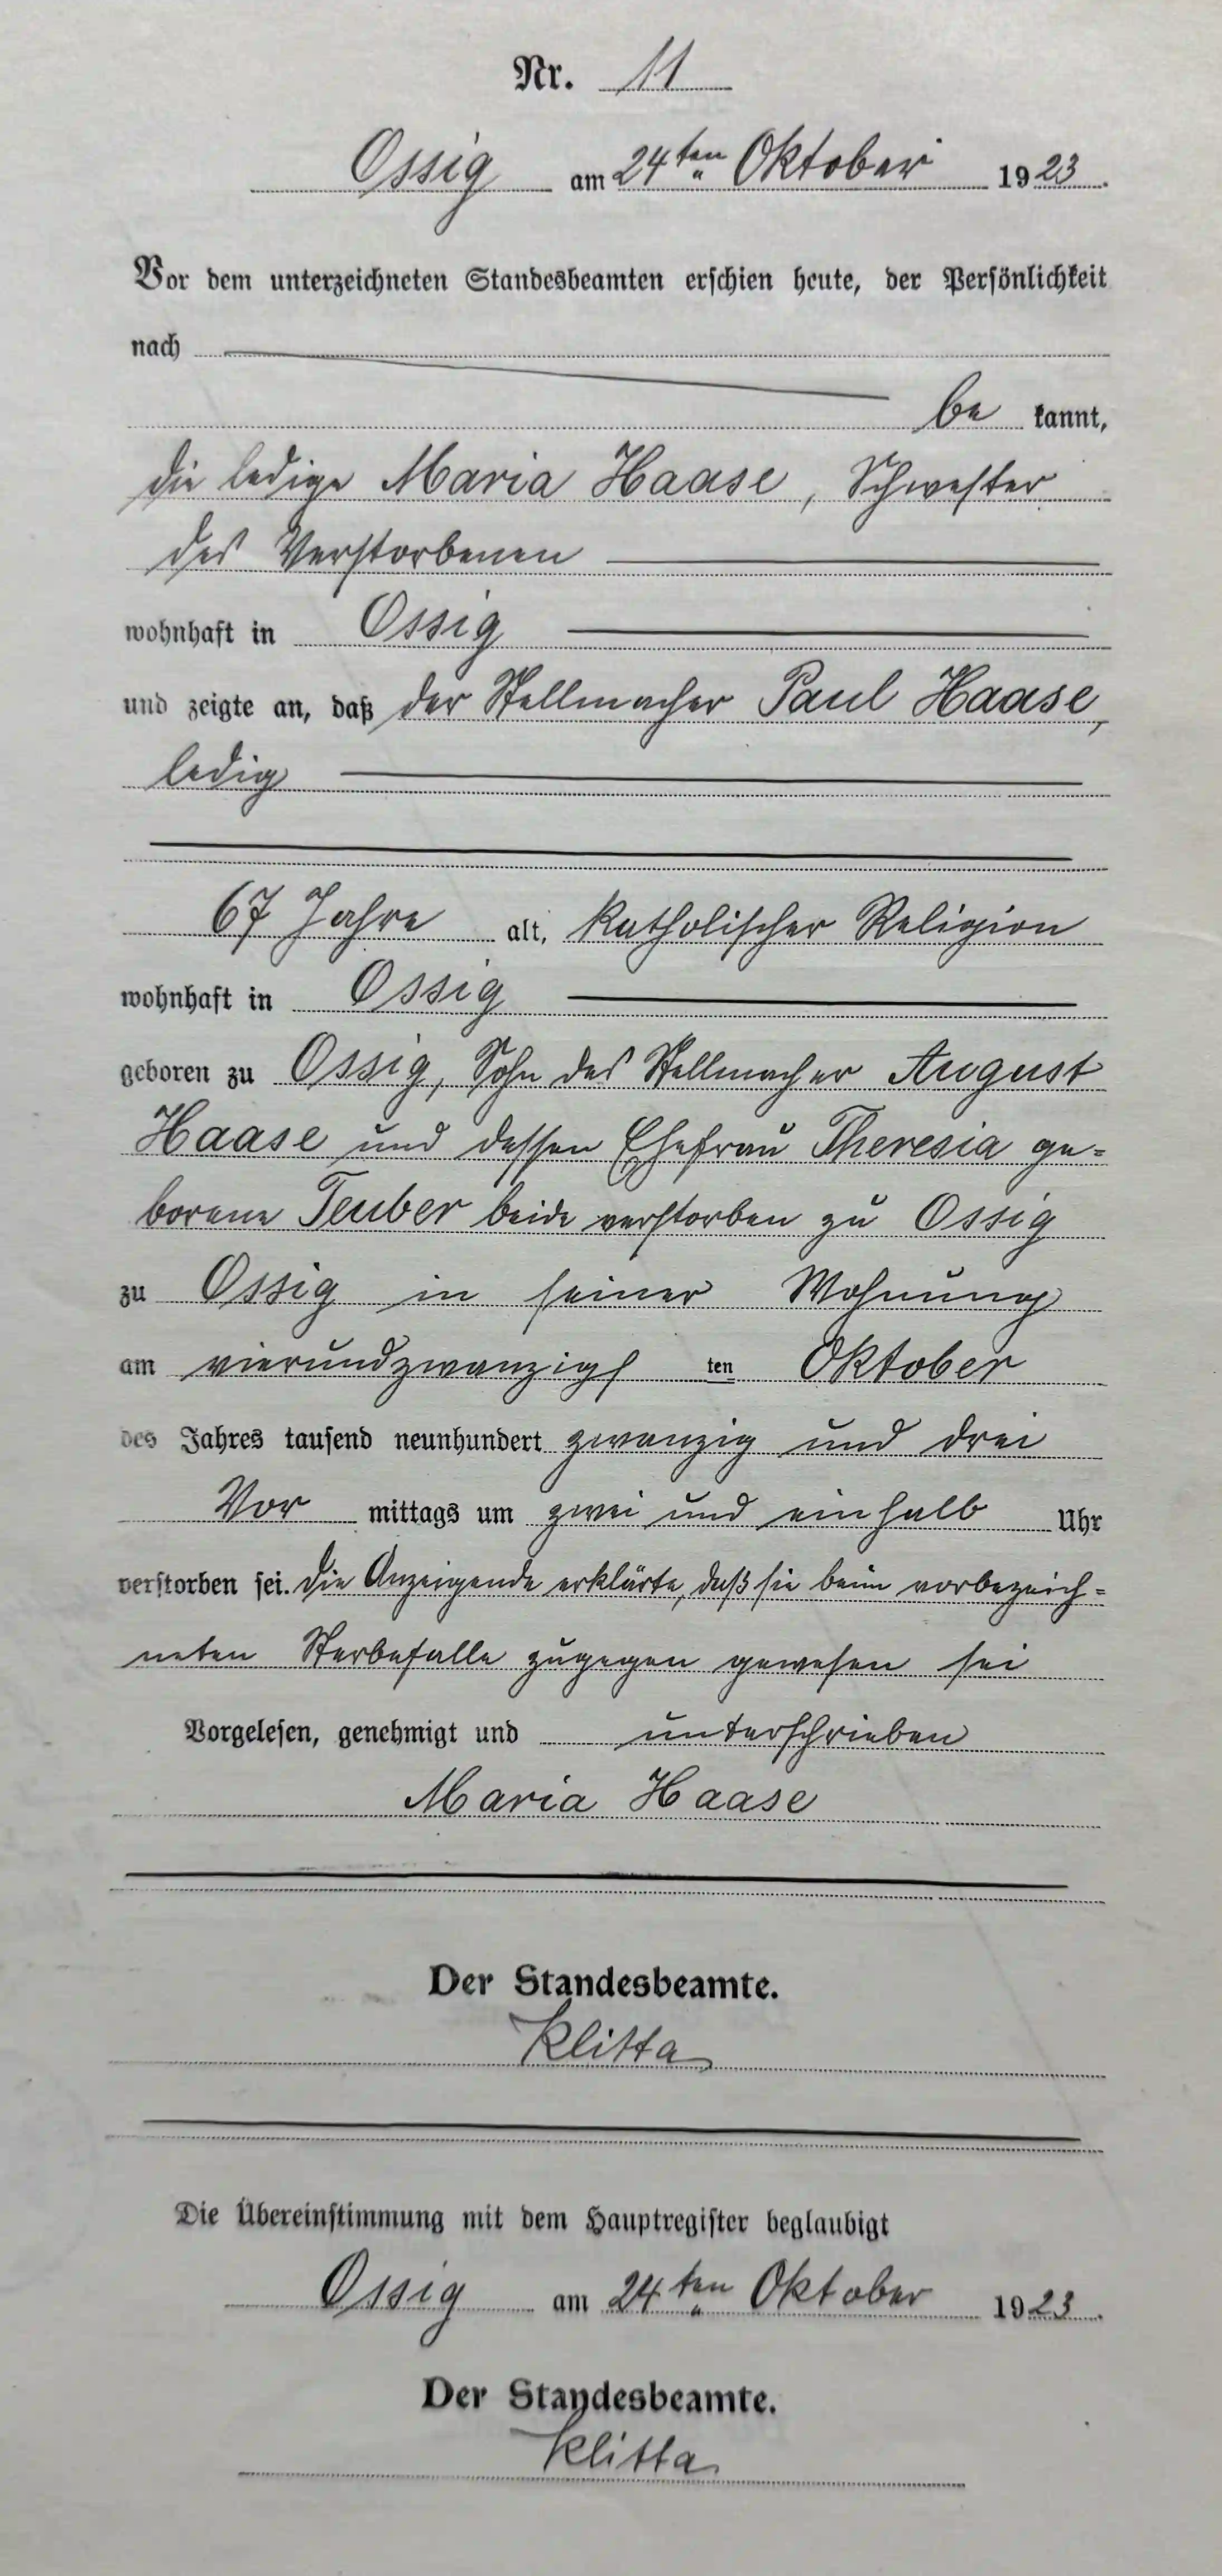 Nr. 11
Ossig am 24ten Oktober 1923.
Vor dem unterzeichneten Standesbeamten erschien heute, der Persönlichkeit
nach
be kannt,
die ledige Maria Haase, Schwester
des Verstorbenen
wohnhaft in Ossig
und zeigte an, daß der Stellmacher Paul Haase,
ledig
67 Jahre alt, katholischer Religion
wohnhaft in Ossig
geboren zu Ossig, Sohn des Stellmacher August
Haase und dessen Ehefrau Theresia ge=
borene Teuber beide verstorben zu Ossig
zu Ossig in seiner Wohnung
am vierundzwanzigs ten Oktober
des Jahres tausend neunhundert zwanzig und drei
Vor mittags um zwei und einhalb Uhr
verstorben sei. Die Anzeigende erklärte, daß sie beim vorbezeich=
neten Sterbefalle zugegen gewesen sei
Vorgelesen, genehmigt und unterschrieben
Maria Haase
Der Standesbeamte.
Klitta
Die Übereinstimmung mit dem Hauptregister beglaubigt
Ossig am 24ten Oktober 1923.
Der Standesbeamte.
Klitta